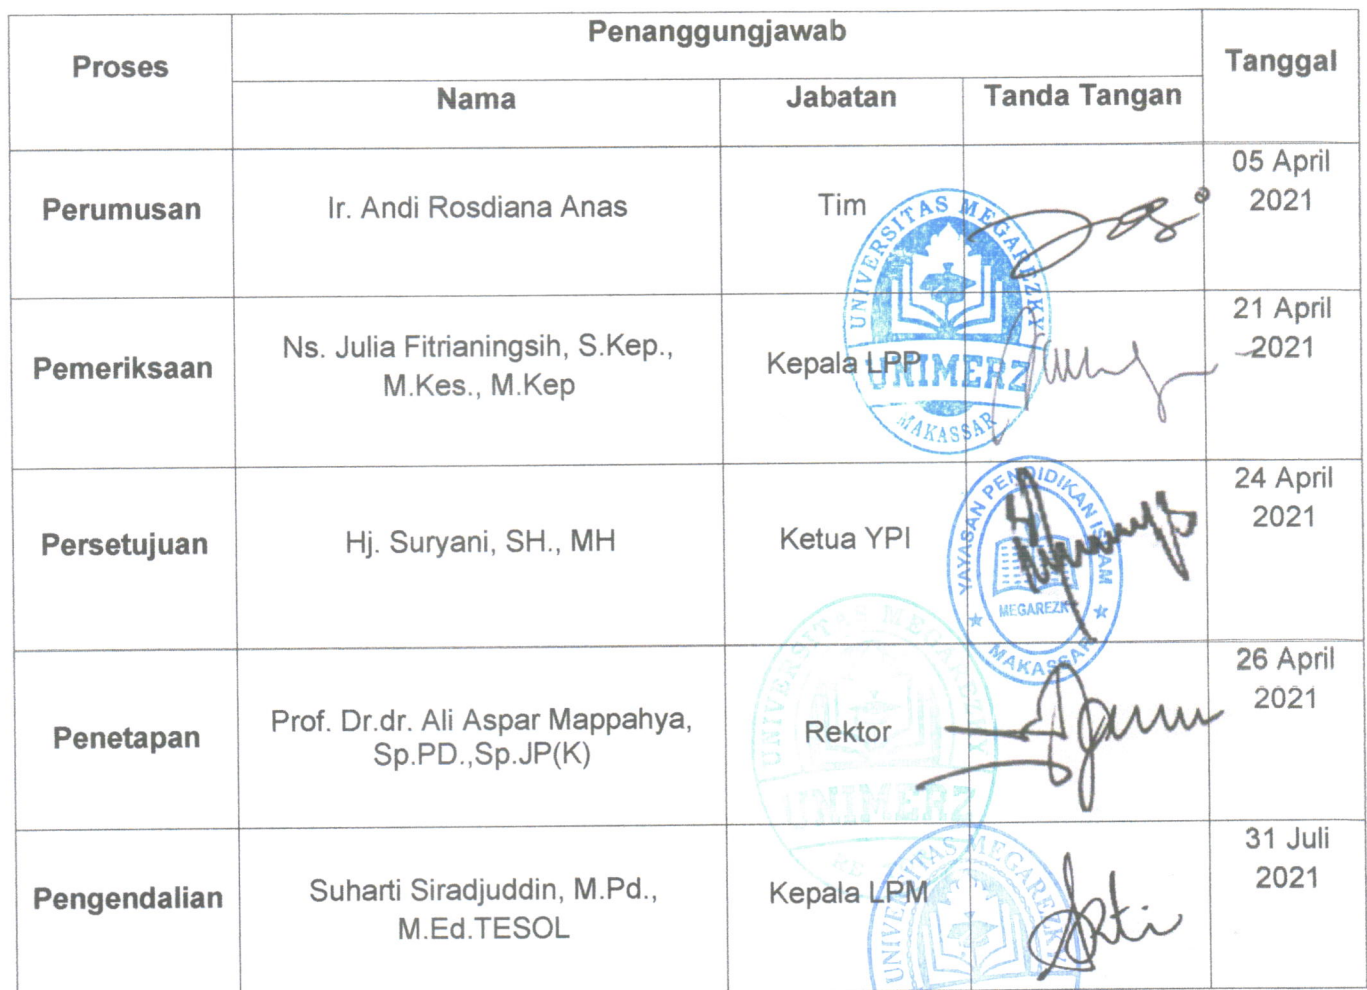 Proses
Penanggungjawab
Tanggal
Nama
Jabatan
Tanda Tangan
Perumusan
Ir. Andi Rosdiana Anas
Tim
05 April
2021
UNIVERSITAS MEGAREZKY
UNIMERZ
MAKASSAR
Pemeriksaan
Ns. Julia Fitrianingsih, S.Kep.,
M.Kes., M.Kep
Kepala LPP
21 April
2021
Persetujuan
Hj. Suryani, SH., MH
Ketua YPI
24 April
2021
YAYASAN PENDIDIKAN ISLAM
MEGAREZKY
MAKASSAR
Penetapan
Prof. Dr.dr. Ali Aspar Mappahya,
Sp.PD.,Sp.JP(K)
Rektor
26 April
2021
UNIVERSITAS MEGAREZKY
UNIMERZ
Pengendalian
Suharti Siradjuddin, M.Pd.,
M.Ed.TESOL
Kepala LPM
31 Juli
2021
UNIVERSITAS MEGAREZKY